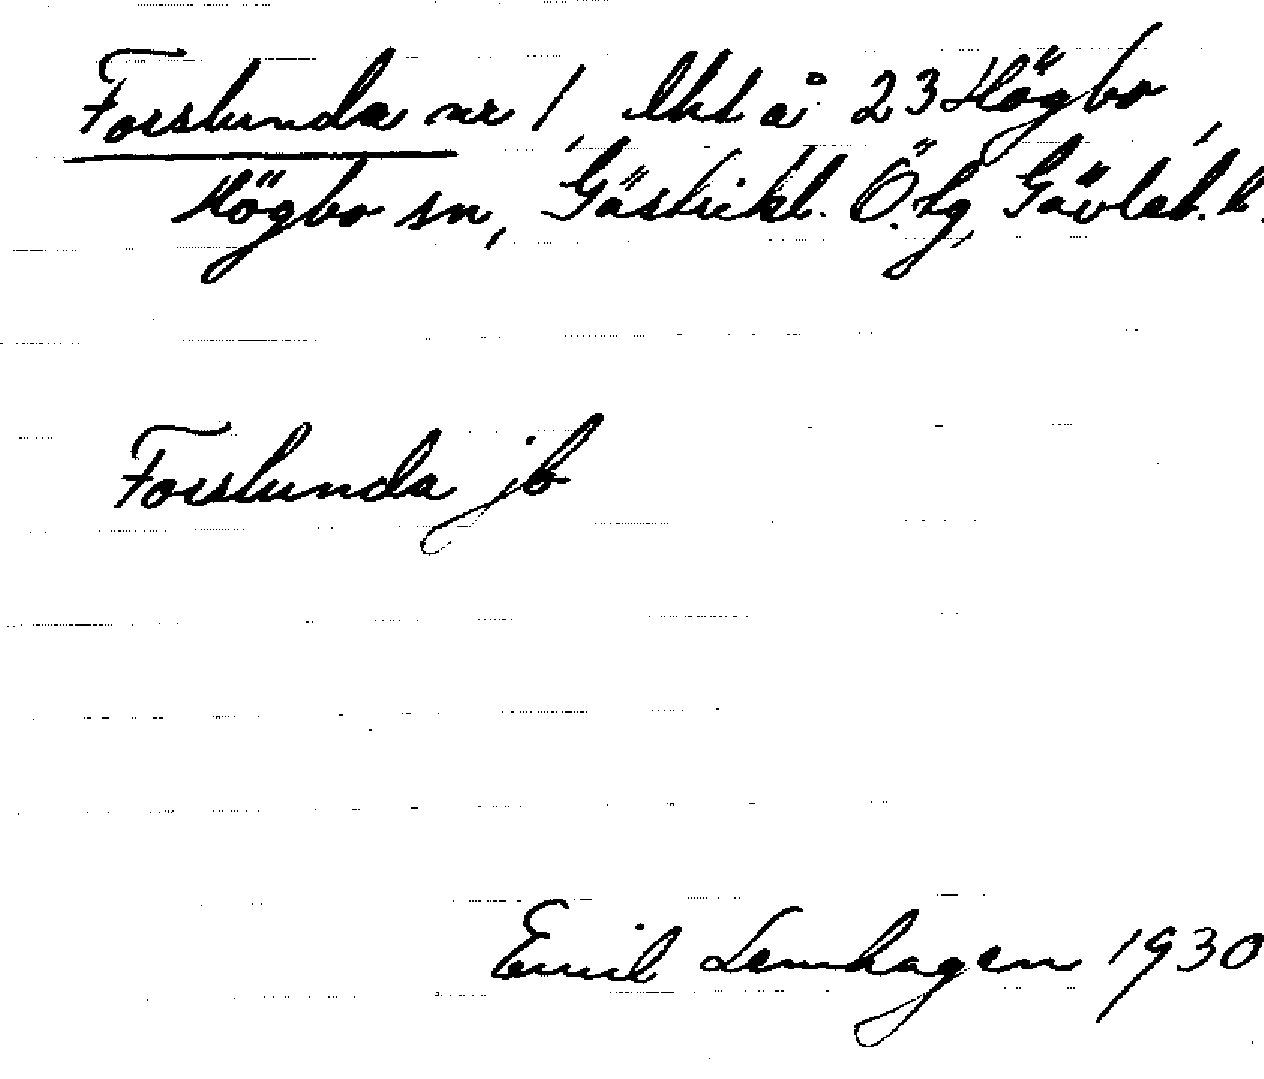 Forslunda nr 1, lht å 23 Högbo,
Högbo sn, Gästrikl. Ö. tg, Gävleb. l.
Forslunda jb
Emil Lennhagen 1930